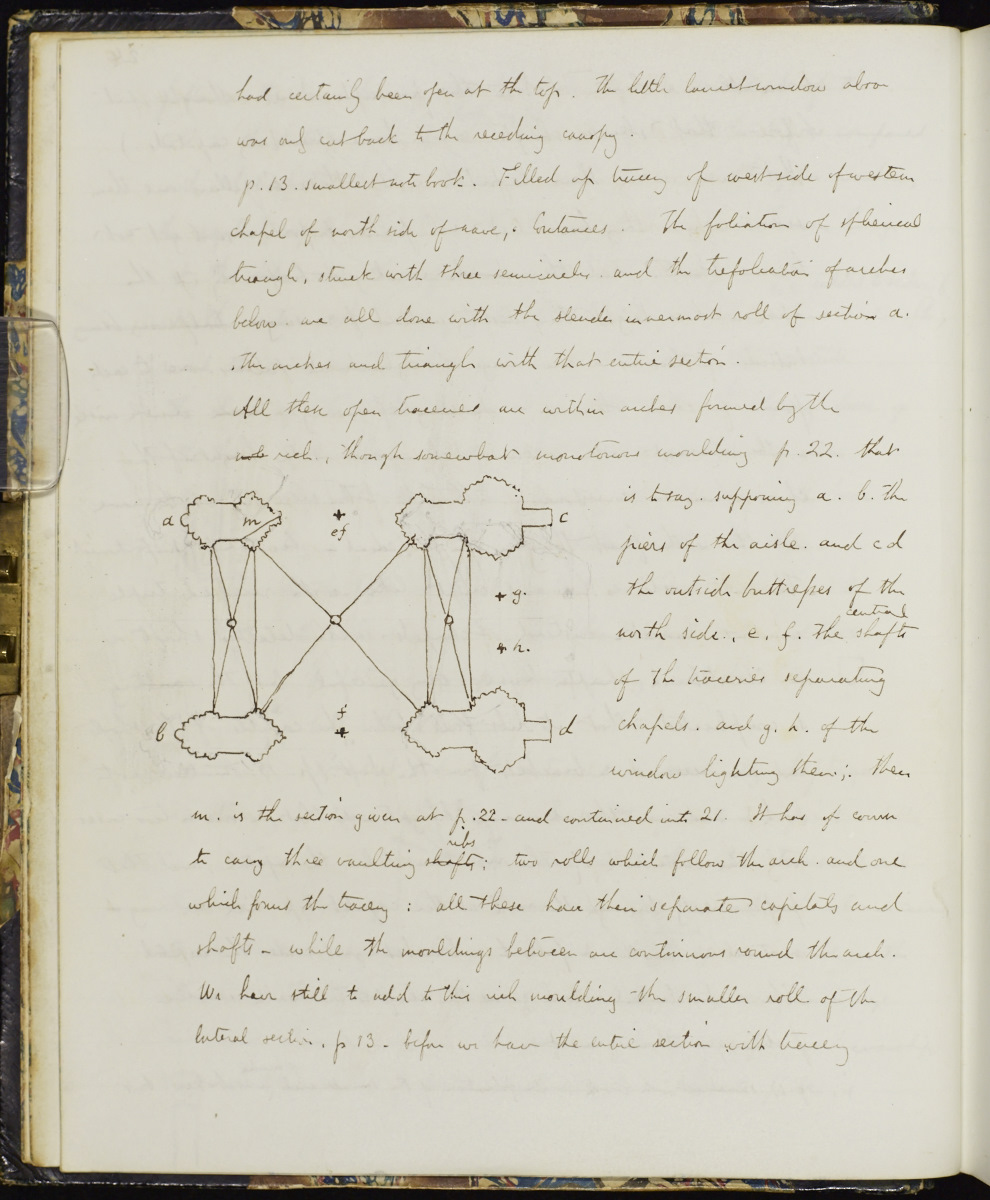 had certainly been open at the top. The little lancet window above
was only cut back to the receding canopy.
p. 13. smallest note book. Filled up tracery of west side of western
chapel of north side of nave, Coutances. The foliation of spherical
triangle, struck with three semicircles. and the trefoliation of arches
below. are all done with the slender innermost roll of section a.
The arches and triangle with that entire section.
All these open traceries are within arches formed by the
rich, though somewhat monotonous moulding p. 22. that
is to say. supposing a. b. the
piers of the aisle. and c d
the outside buttresses of the
north side., e. f. the central shafts
of the traceries separating
chapels. and g. h. of the
window lighting them; then
m. is the section given at p. 22 - and continued into 21. It has of course
to carry three vaulting shafts ribs: two rolls which follow the arch. and one
which forms the tracery: all these have their separate capitals and
shafts - while the mouldings between are continuous round the arch.
We have still to add to this rich moulding the smaller roll of the
lateral section, p 13 - before we have the entire section with tracery
a
m
ef
c
g.
h.
b
f
d